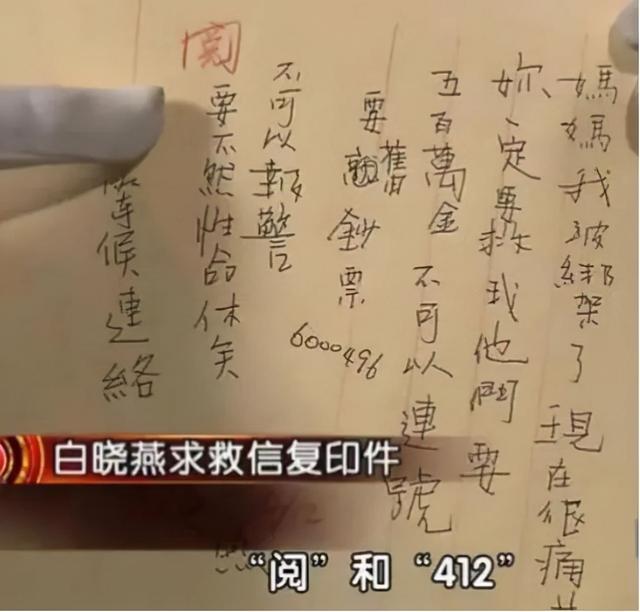 媽媽我被綁架了現在很痛苦
妳一定要救我他們要
五百萬美金 不可以連號
要舊鈔票
6000496
不可以報警
要不然性命休矣
閱
等候連絡
白晓燕求救信复印件
“阅”和“412”